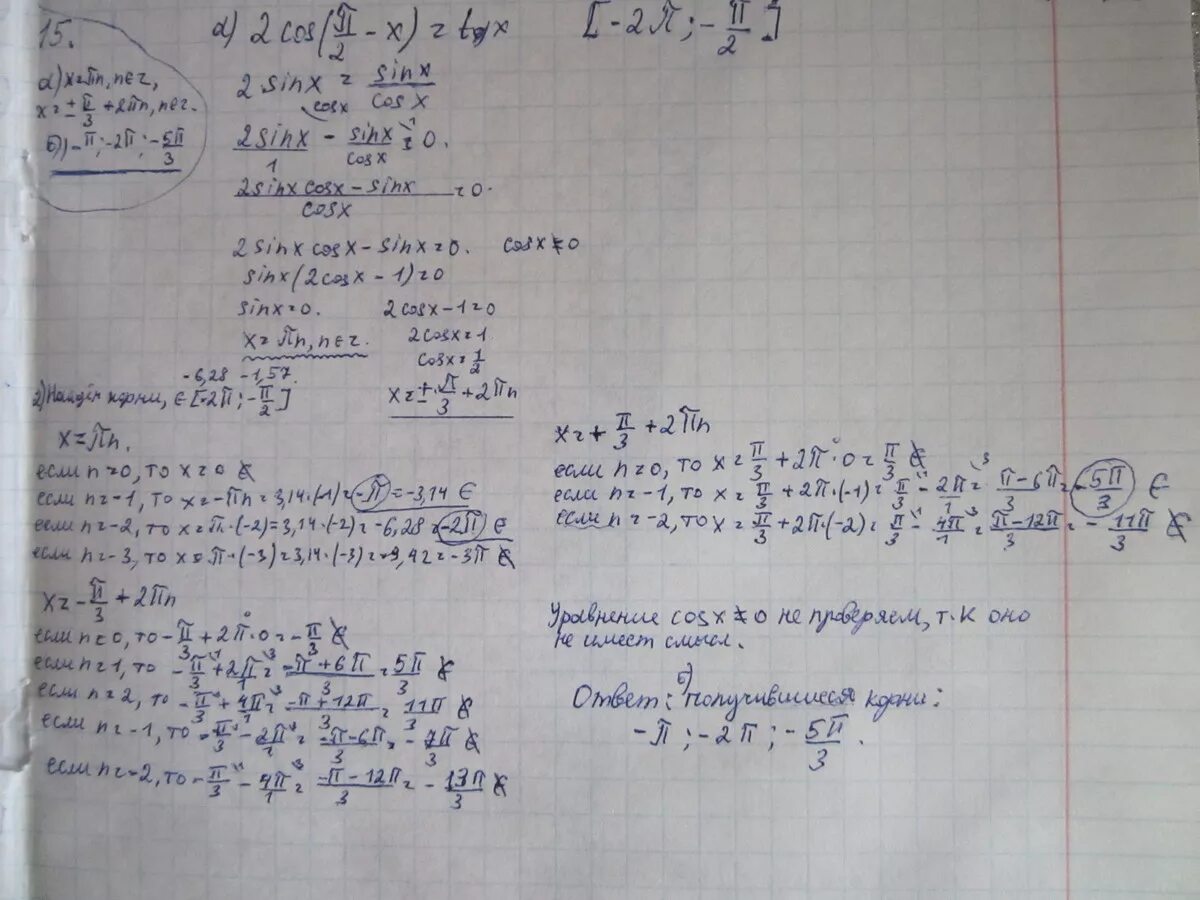 15.
а) 2cos(π/2 - x) = tgx [-2π; -π/2]
а) x=πn, n∈z,
x=±π/3+2πn, n∈z.
б) -π; -2π; -5π/3
2sinx = sinx/cosx
2sinx/1 - sinx/cosx = 0.
(2sinxcosx - sinx)/cosx = 0.
2sinxcosx - sinx = 0. cosx≠0
sinx(2cosx - 1) = 0
sinx=0. 2cosx-1=0
x=πn, n∈z. 2cosx=1
cosx=1/2
x=±π/3+2πn
-6,28 -1,57
2) Найдём корни, ∈ [-2π; -π/2]
x=πn.
если n=0, то x=0 ∉
если n=-1, то x=-πn=3,14·(-1)=-π=-3,14 ∈
если n=-2, то x=π·(-2)=3,14·(-2)=-6,28=-2π ∈
если n=-3, то x=π·(-3)=3,14·(-3)=-9,42=-3π ∉
x=-π/3+2πn
если n=0, то -π/3+2π·0=-π/3 ∉
если n=1, то -π/3+2π/1=(-π+6π)/3=5π/3 ∉
если n=2, то -π/3+4π/1=(-π+12π)/3=11π/3 ∉
если n=-1, то -π/3-2π/1=(-π-6π)/3=-7π/3 ∉
если n=-2, то -π/3-4π/1=(-π-12π)/3=-13π/3 ∉
x=+π/3+2πn
если n=0, то x=π/3+2π·0=π/3 ∉
если n=-1, то x=π/3+2π·(-1)=π/3-2π/1=(π-6π)/3=-5π/3 ∈
если n=-2, то x=π/3+2π·(-2)=π/3-4π/1=(π-12π)/3=-11π/3 ∉
Уравнение cosx≠0 не проверяем, т.к оно
не имеет смысл.
Ответ: б) получившиеся корни:
-π; -2π; -5π/3.